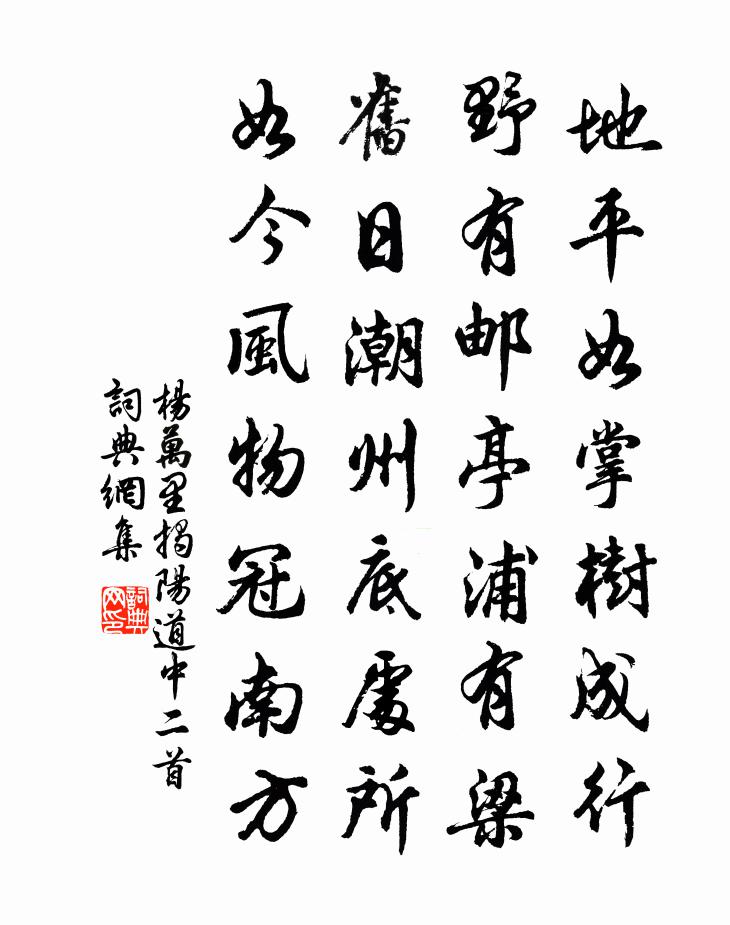 地平如掌樹成行
野有邮亭浦有梁
舊日潮州底處所
如今風物冠南方
楊萬里揭陽道中二首
詞典網集
詞典網印